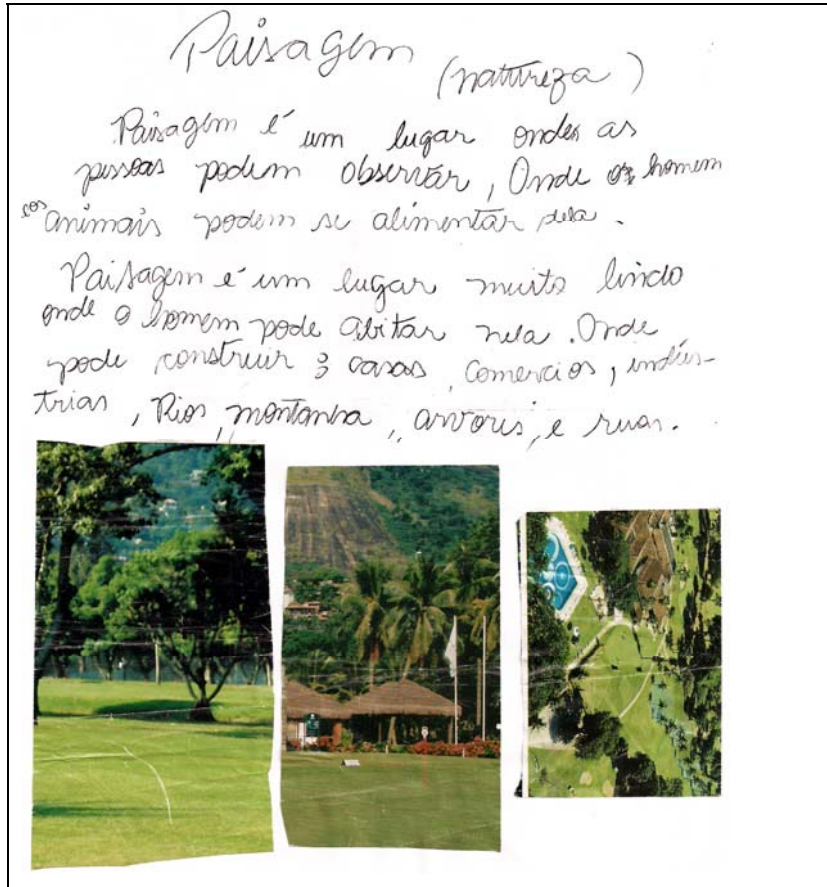 Paisagem (natureza)
Paisagem é um lugar ondes as
pessoas podem observar, Onde os homem
e os animais podem se alimentar dela.
Paisagem é um lugar muito lindo
onde o homem pode abitar nela. Onde
pode construir casas, comercios, indús-
trias, Rios, montanha, arvores, e ruas.